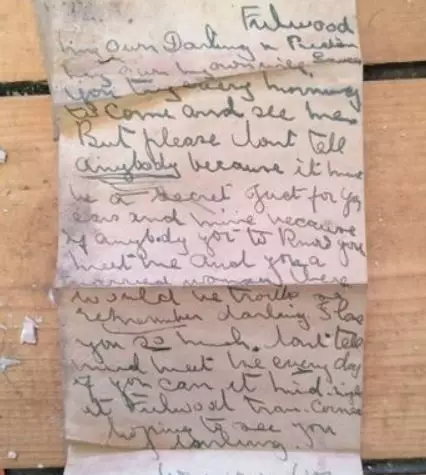 Fulwood
my own Darling in Preston
my own
you try every morning
to come and see me
But please dont tell
anybody because it must
be a secret Just for your
ears and mine because
if anybody got to know you
meet me and your a
married woman there
would be trouble so
remember darling I love
you so much. dont tell
mind meet me every day
if you can at mid-night
at Fulwood Tram-Corner
hoping to see you
darling.